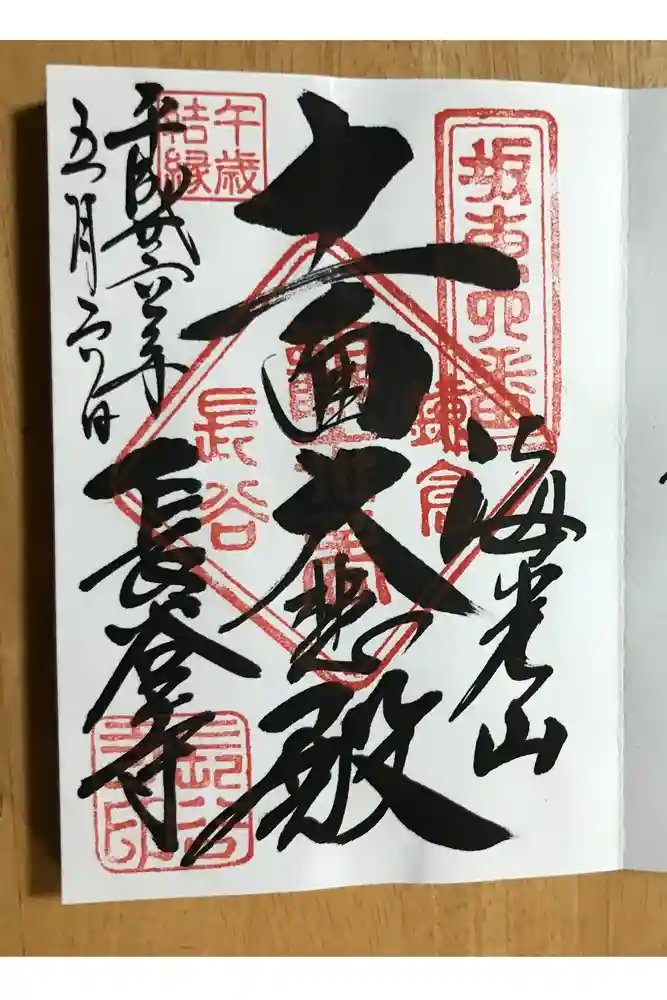 坂東四番
海光山
十一面大悲殿
鎌倉
長谷
午歳
結縁
平成廿六年
五月
長谷寺
長谷
寺印